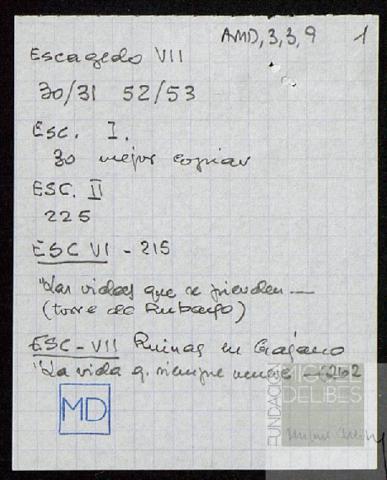 AMD, 3, 3, 9 1
Escagedo VII
30/31 52/53
ESC. I.
30 mejor copiar
ESC. II
225
ESC VI - 215
"Las vidas que se pierden —
(torre de Rubayo)
ESC - VII Ruinas en Gajano
"La vida q. siempre vence — 202
MD
FUNDACIÓN
MIGUEL
DELIBES